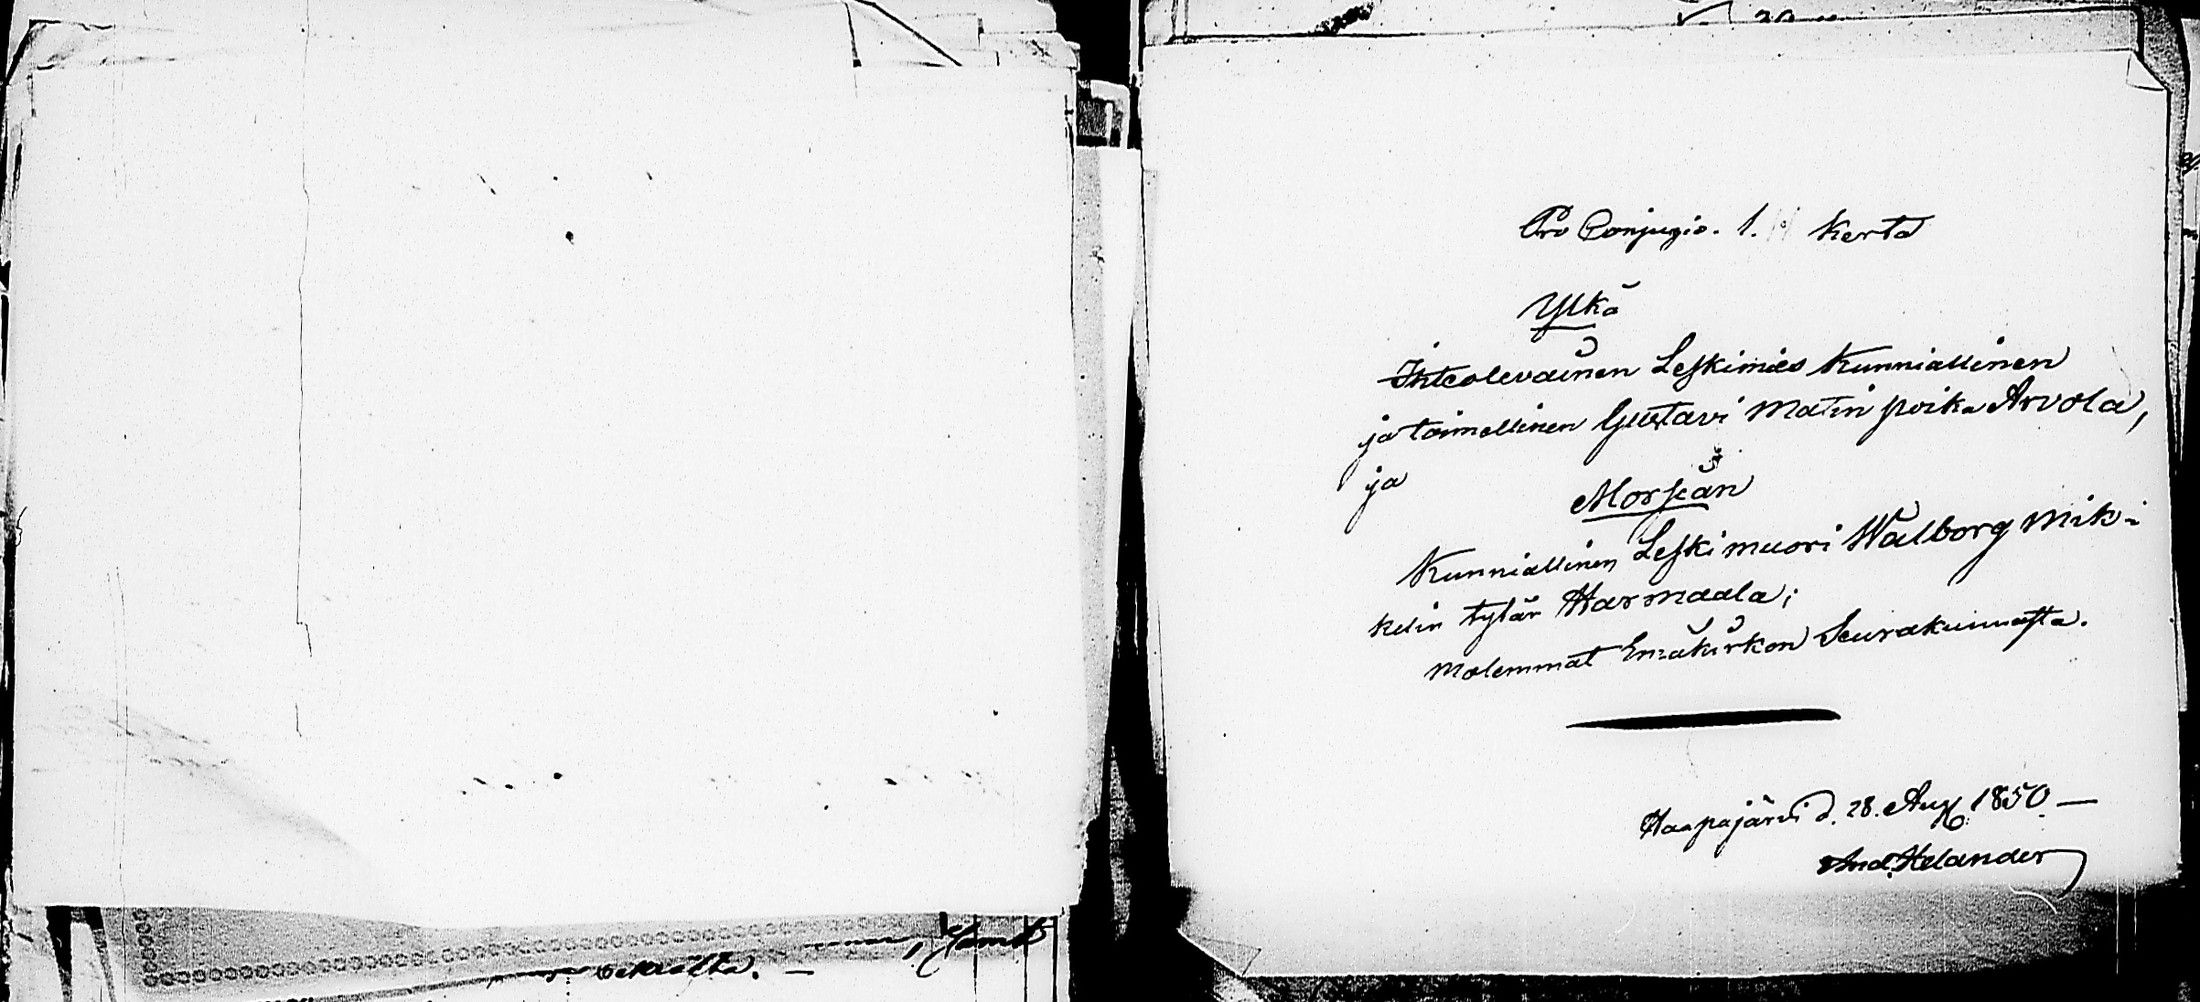 Pro Conjugio. 1. Kerta
Ylkä
Ihteolevainen Leskimies Kunniallinen
ja toimellinen Gustavi Matin poika Arvola,
ja
Morsiän
Kunniallinen Leskimuori Walborg Mik-
kelin tytär Harmaala;
Molemmat Emäkirkon Seurakunnasta.
Haapajärvi d. 28. Aug. 1850. —
And. Helander